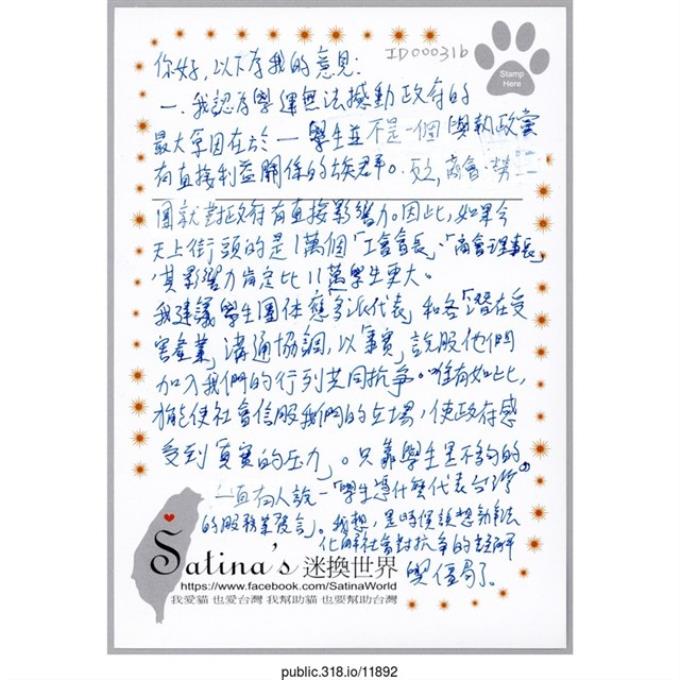 ID000316
Stamp
Here
你好，以下為我的意見：
一、我認為學運無法撼動政府的
最大原因在於一學生並不是一個與執政黨
有直接利益關係的族群。反之，商會、勞工
團就對政府有直接影響力。因此，如果今
天上街頭的是1萬個「工會會長」、「商會理事長」
，其影響力肯定比11萬學生更大。
我建議學生團体應多派代表，和各「潛在受
害產業」溝通協調，以「事實」說服他們
加入我們的行列共同抗爭。唯有如此，
才能使社會信服我們的立場，使政府感
受到「真實的压力」。只靠學生是不夠的。
一直有人說－「學生憑什麼代表台灣
的服務業發言」。我想，是時候該想辦法
化解社會對抗爭的誤解
與僵局了。
Satina's 迷換世界
https://www.facebook.com/SatinaWorld
我愛貓 也愛台灣 我幫助貓 也要幫助台灣
public.318.io/11892